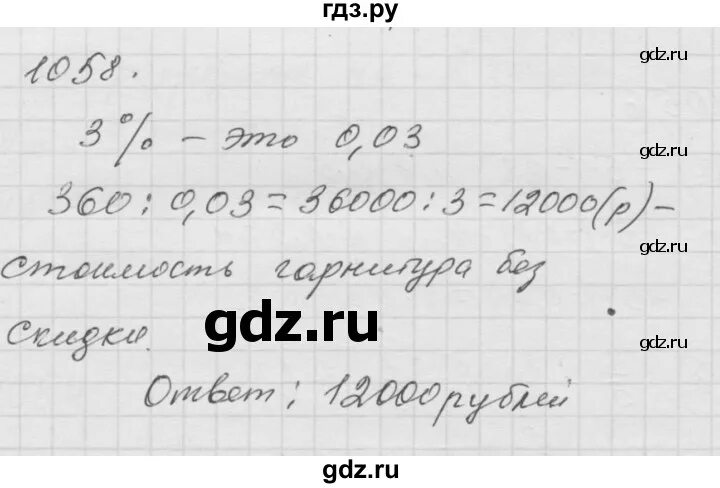 гдз.ру
gdz.ru
gdz.ru
1058.
3% – это 0,03
gdz.ru
360 : 0,03 = 36000 : 3 = 12000(р) –
gdz.ru
стоимость гарнитура без
gdz.ru
скидки.
gdz.ru
Ответ: 12000 рублей
gdz.ru
gdz.ru